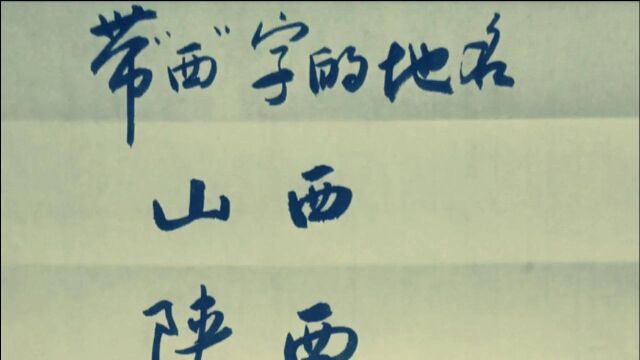 带"西"字的地名
山西
陕西